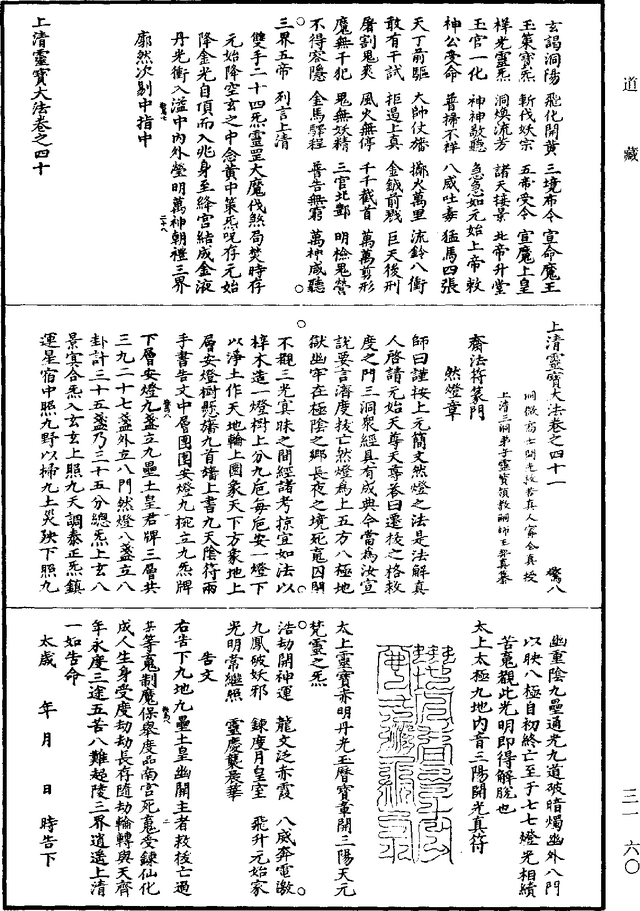 玄謁洞陽　飛化開黃　三境布令　宣命魔王
玉策寶炁　斬伐妖宗　五帝受令　宣魔上皇
祥光靈炁　洞煥流芳　諸天接景　北帝升堂
玉官一化　神神敬聽　急急如元始上帝敕
神公受命　普掃不祥　八威吐毒　猛馬四張
天丁前驅　大帥仗旛　擲火萬里　流鈴八衝
敢有干試　拒遏上真　金鉞前戮　巨天後刑
屠割鬼爽　風火無停　千千截首　萬萬剪形
魔無干犯　鬼無妖精　三官北酆　明檢鬼營
不得容隱　金馬驛程　普告無窮　萬神咸聽
三界五帝　列言上清
雙手二十四炁靈罡大魔伐煞局焚時存
元始降空玄之中念黃中策炁呪存元始
降金光自頂而入兆身至絳宮結成金液
丹光衝入溢中內外瑩明萬神朝禮三界
廓然次剔中指中
上清靈寶大法卷之四十
上清靈寶大法卷之四十一　驚八
洞微高士開光救苦真人甯全真授
上清三洞弟子靈寶領教嗣師王契真纂
齋法符篆門
然燈章
師曰謹按上元簡文然燈之法是法解真
人啓請元始天尊天尊答曰遷拔之格救
度之門三洞衆經具有成典今當爲汝宣
說要言濟度拔亡然燈爲上五方八極地
獄幽牢在極陰之鄉長夜之境死魂囚閉
不覩三光冥昧之間經諸考掠宜如法以
梓木造一燈樹上分九巵每巵安一燈下
以淨土作天地輪上圓象天下方象地上
層安燈樹懸旛九首旛上書九天陰符兩
手書告文中層團圓安燈九椀立九炁牌
下層安燈九盞立九壘土皇君牌三層共
三九二十七盞外立八門然燈八盞立八
卦計三十五盞乃三十五分總炁上玄八
景冥合炁入玄玄上照九天調泰正炁鎮
運星宿中照九野以掃九土災殃下照九
幽重陰九壘通光九道破暗燭幽外八門
以映八極自初終亡至于七七燈光相續
苦魂觀此光明即得解脫也
太上太極九地內音三陽開光真符
太上靈寶赤明丹光玉曆寶章開三陽天元
梵靈之炁
浩劫開神運　龍文泛赤霞　八威奔電激
九鳳破妖邪　鍊度月皇室　飛升元始家
光明常繼照　靈慶襲晨華
告文
右告下九地九壘土皇幽關主者救拔亡過
某等魂制魔保舉度品南宮死魂受鍊仙化
成人生身受度劫劫長存隨劫輪轉與天齊
年永度三途五苦八難超陵三界逍遙上清
一如告命
太歲　年　月　日　時告下
道藏
三一　六〇